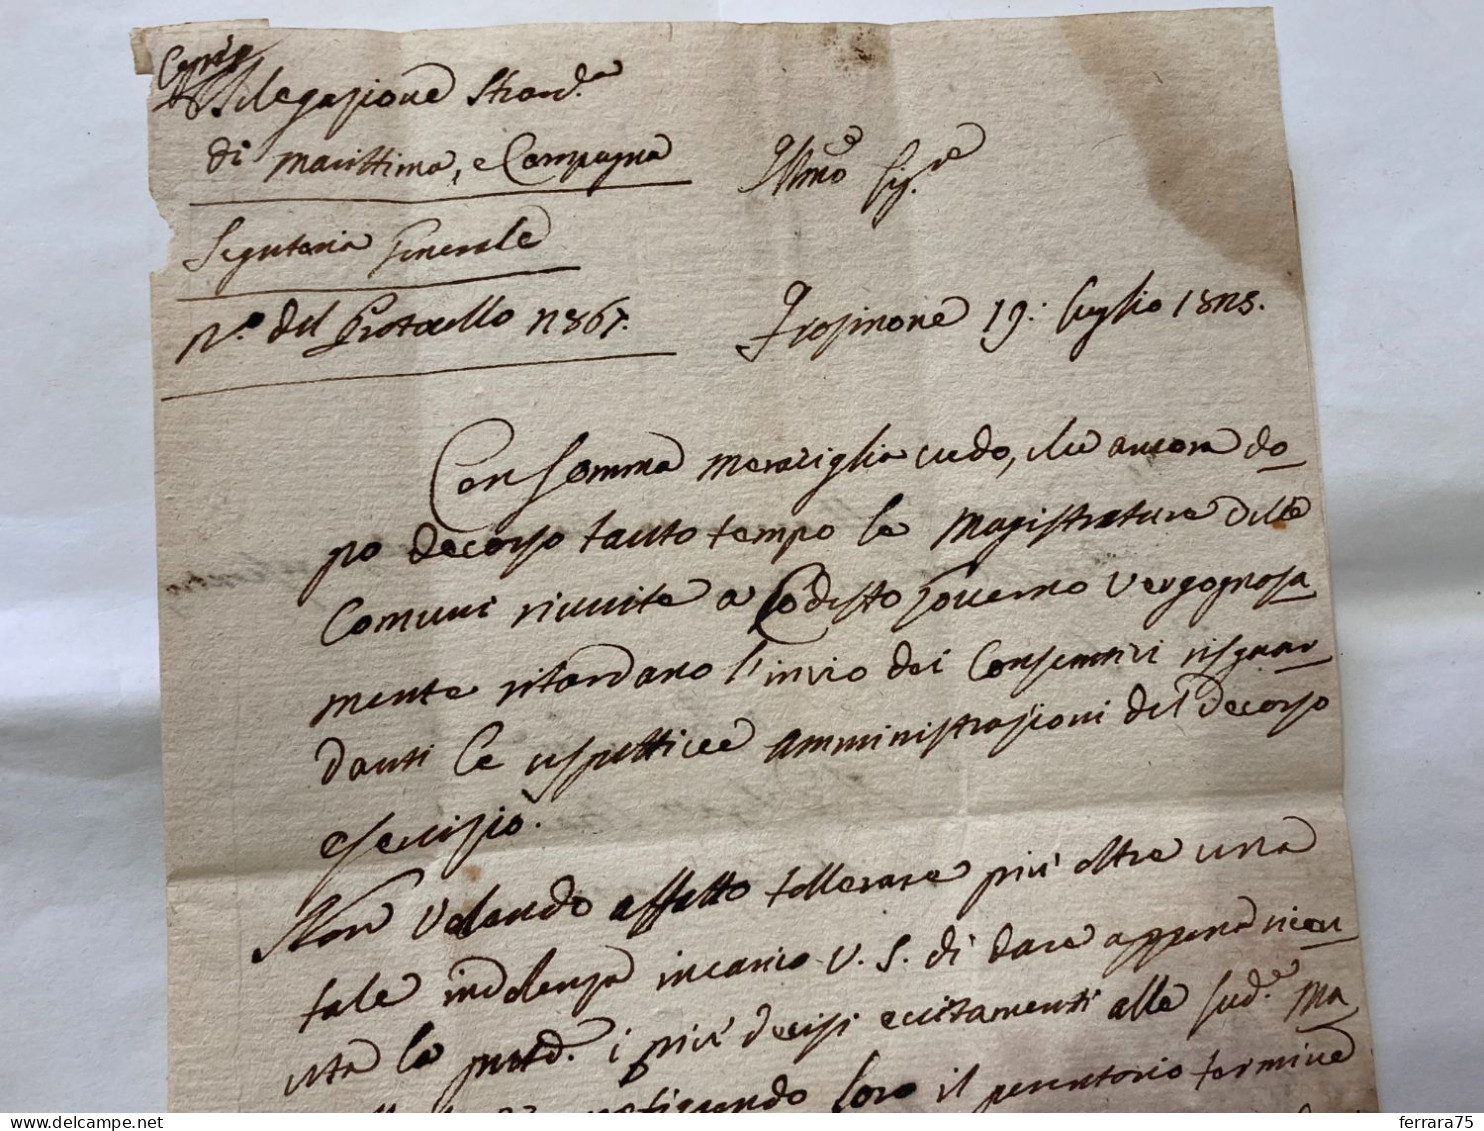 Copia
Delegazione Straord.a
di Marittima, e Campagna
Segreteria Generale
N.o del Protocollo n 867.
Illmo Sig.re
Frosinone 19: luglio 18
Con somma maraviglia vedo, che ancora do-
po decorso tanto tempo le Magistrature delle
Comuni riunite a Codesto Governo vergognosa-
mente ritardano l'invio dei Consentivi risguar-
danti le rispettive amministrazioni del decorso
esercizio.
Non volendo affatto tollerare più oltre una
tale indolenza incarico V. S. di dare appena ricevu-
uta la pnte i più decisi eccitamenti alle sud.e Ma
notificando loro il perentorio termine
ferrara75